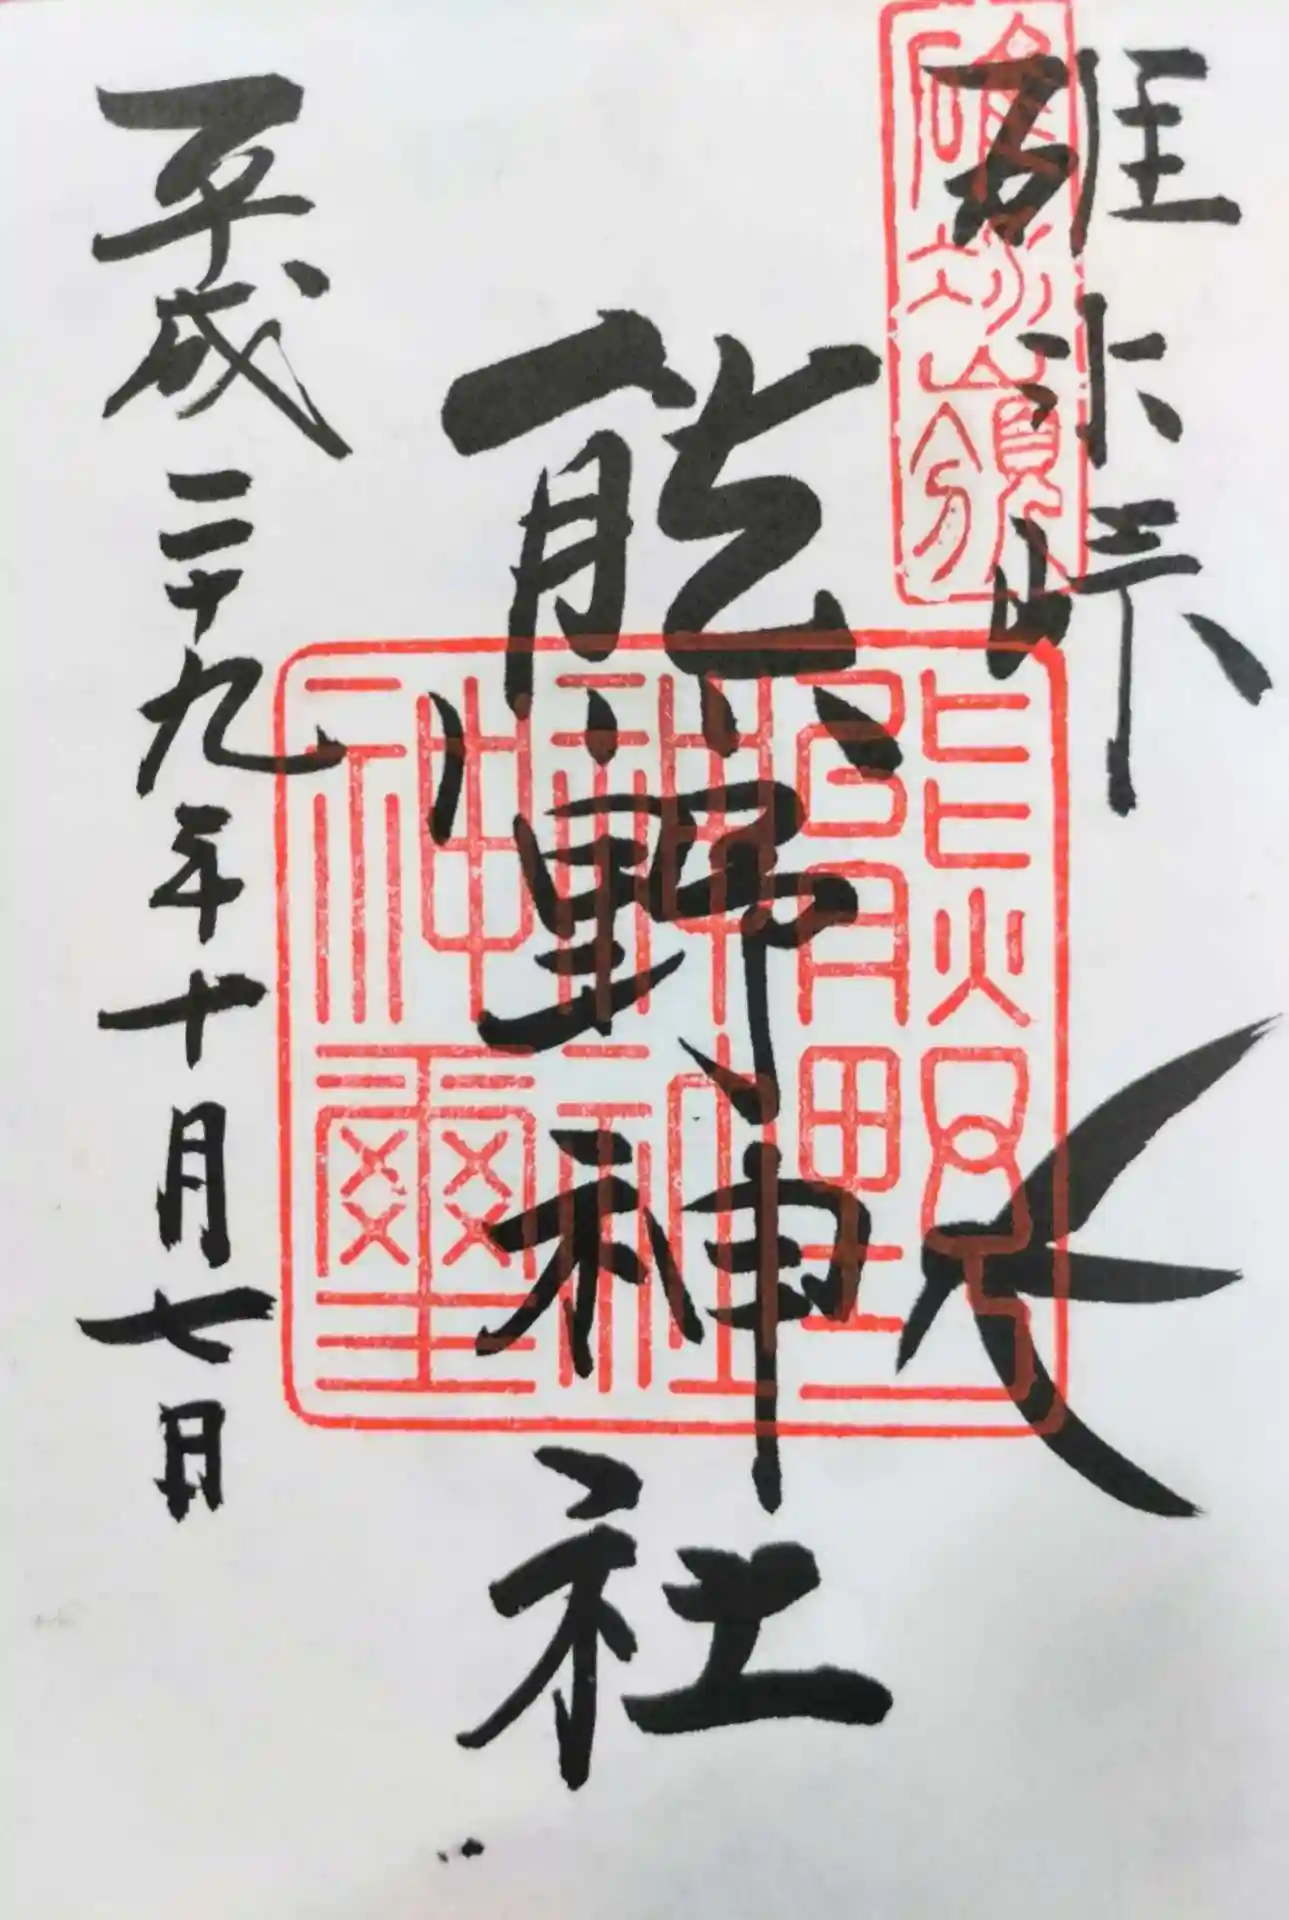 碓氷峠
熊野神社
平成二十九年十月七日
碓氷嶺
熊野神社神璽